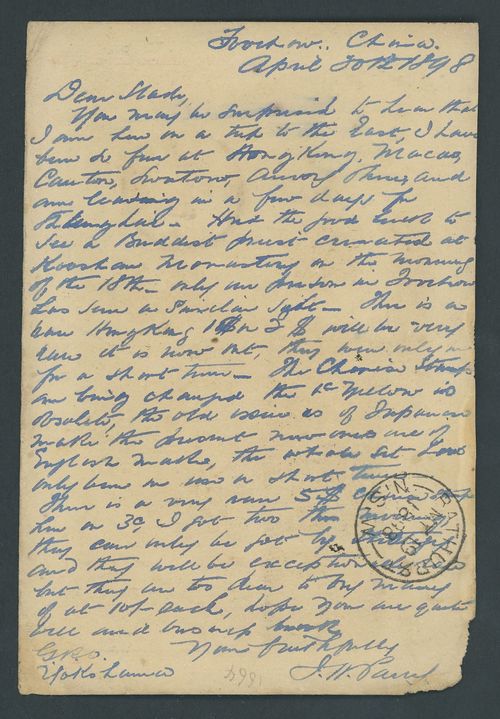 Foochow, China.
April 20th 1898
Dear Slade,
You may be surprised to hear that
I am here on a trip to the East, I have
been so far at HongKong, Macao,
Canton, Swatow, Amoy and
am leaving in a few days for
Shanghai. Had the good luck to
see a Buddist priest cremated at
Kooshan Monastery on the morning
of the 18th only one person in Foochow
has seen a similar sight. There is a
HongKong 1$ on 3 $ will be very
rare it is now out, they were only
for a short time. The Chinese Stamps
are being changed the 1c yellow is
obsolete, the old issue is of Japanese
make the present new ones are of
English make, the whole set have
only been in use a short time
There is a very rare 5$ China
here on 3c, I got two this morning
they can only be got by
and they will be exceptionally
but they are too dear to buy many
of at 10/- each, hope you are quite
well and business
Yours faithfully
G.P.O.
Yokohama